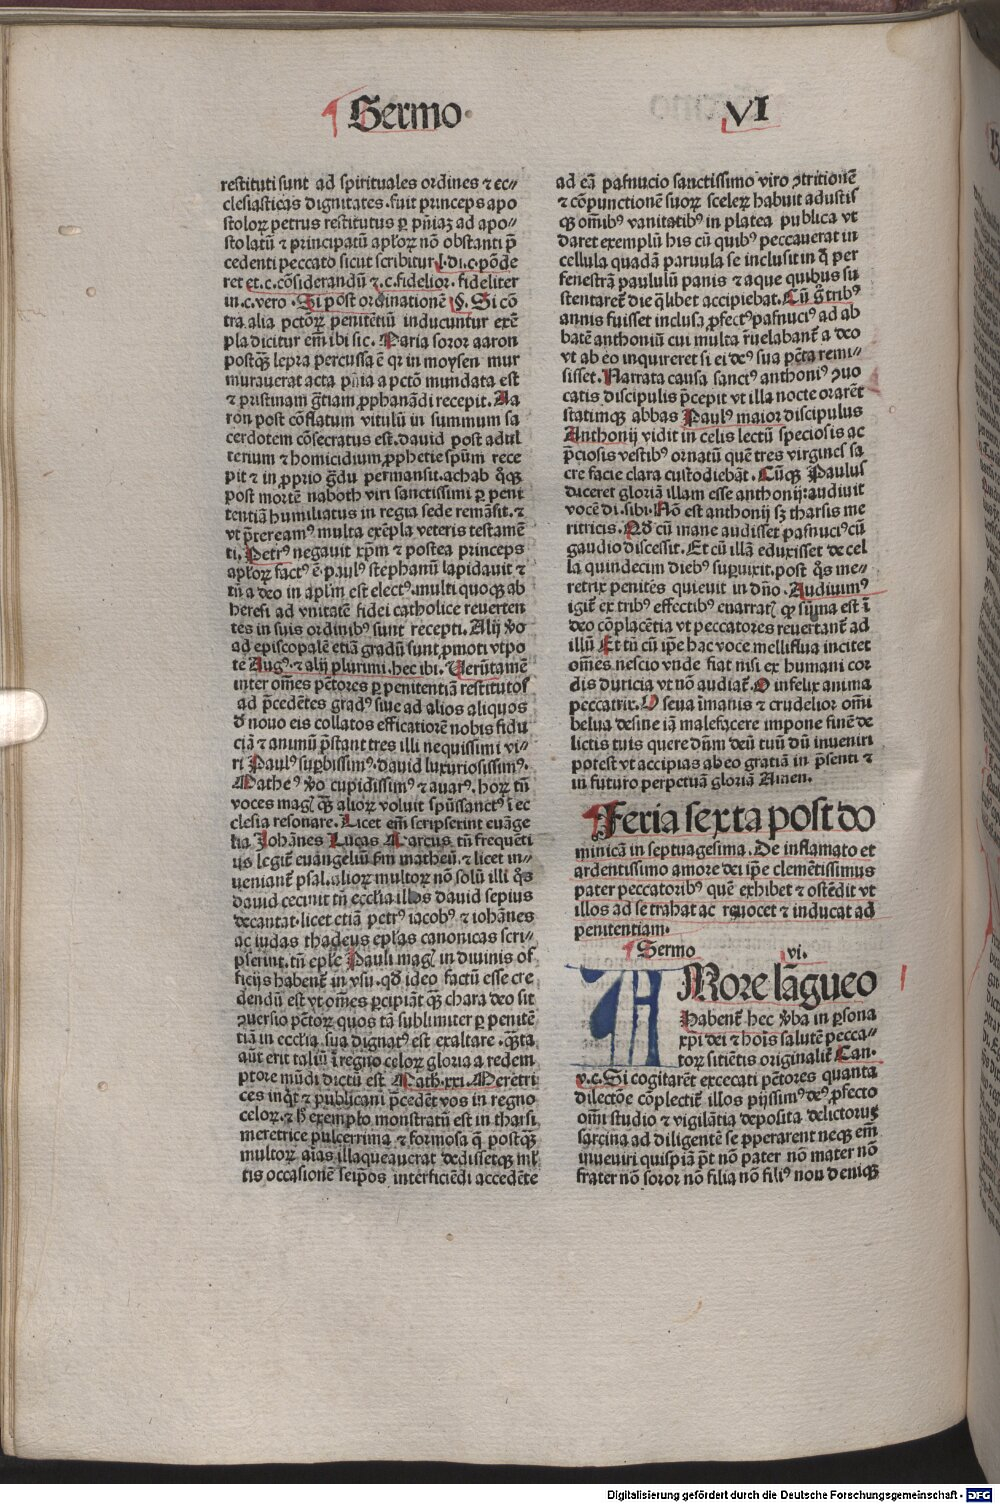 Sermo VI
restituti sunt ad spirituales ordines ⁊ ec-
clesiasticas dignitates. fuit princeps apo
stoloꝝ petrus restitutus ꝑ pñiaʒ ad apo-
stolatū ⁊ principatū apłoꝝ nō obstanti p̄
cedenti peccato sicut scribitur l. di. c. pōde
ret et. c. cōsiderandū ⁊. c. fidelior. fideliter
in. c. vero. Si post ordinationē §. Si cō
tra. alia pctōꝝ penitētiū inducuntur exē
pla dicitur em̄ ibi sic. Maria soror aaron
postqʒ lepra percussa ē qꝛ in moysen mur
murauerat acta pñia a pctō mundata est
⁊ pristinam gr̄tiam ꝓphanādi recepit. Aa
ron post cōflatum vitulū in summum sa
cerdotem cōsecratus est. dauid post adul
terium ⁊ homicidium ꝓphetie spūm rece
pit ⁊ in ꝓprio gr̄du permansit. achab qͦqʒ
post mortē naboth viri sanctissimi ꝑ peni
tentiā humiliatus in regia sede remāsit. ⁊
vt p̄tereamꝰ multa exēpla veteris testamē
ti. Petrꝰ negauit xp̄m ⁊ postea princeps
apłoꝝ factꝰ ē. paulꝰ stephanū lapidauit ⁊
tn̄ a deo in apłm est electꝰ. multi quoqʒ ab
heresi ad vnitatē fidei catholice reuerten
tes in suis ordinibꝰ sunt recepti. Alij ꝟo
ad episcopalē etiā gradū sunt ꝓmoti vtpo
te Augꝰ. ⁊ alij plurimi. hec ibi. Verūtamē
inter om̄es pctōres ꝑ penitentiā restitutos
ad p̄cedētes gradꝰ siue ad alios aliquos
de nouo eis collatos efficatiorē nobis fidu
ciā ⁊ animū p̄stant tres illi nequissimi vi-
ri Paulꝰ suꝑbissimꝰ. dauid luxuriosissimꝰ.
Matheꝰ ꝟo cupidissimꝰ ⁊ auarꝰ. hoꝝ tn̄
voces magꝭ qʒ alioꝝ voluit spūssanctꝰ ī ec
clesia resonare. Licet em̄ scripserint euāge
lia Johānes Lucas Marcus tn̄ frequēti
us legit̄ euangeliū sm̄ matheū. ⁊ licet in-
ueniant̄ psal. alioꝝ multoꝝ nō solū illi qͦs
dauid cecinit tn̄ ecclīa illos dauid sepius
decantat. licet etiā petrꝰ iacobꝰ ⁊ iohānes
ac iudas thadeus ep̄las canonicas scri-
pserint. tn̄ ep̄le Pauli magꝭ in diuinis of
ficijs habent̄ in vsu. qd̄ ideo factū esse cre
dendū est vt om̄es ꝑcipiāt qʒ chara deo sit
ꝯuersio pctōꝝ quos tā sublimiter ꝑ penitē
tiā in ecclīa sua dignatꝰ est exaltare. qʒta
aūt erit taliū ī regno celoꝝ gloria a redem
ptore mūdi dictū est Math. xxi. Meretri
ces inqͥt ⁊ publicani p̄cedēt vos in regno
celoꝝ. ⁊ hͦ exemplo monstratū est in tharsi
meretrice pulcerrima ⁊ formosa q̄ postqʒ
multoꝝ aīas illaqueauerat dedissetqʒ ml̓
tis occasionē seip̄os interficiēdi accedēte
ad eā pafnucio sanctissimo viro ꝯtritionē
⁊ cōpunctionem suoꝝ sceleꝝ habuit adustis
qʒ om̄ibꝰ vanitatibꝰ in platea publica vt
daret exemplū his cū quibꝰ peccauerat in
cellula quadā paruula se inclusit in q̄ per
fenestrā paululū panis ⁊ aque quibus su
stentaret̄ die qͣlibet accipiebat. Cū gͦ tribꝰ
annis fuisset inclusa ꝓfectꝰ pafnuciꝰ ad ab
batē anthoniū cui multa r̄uelabant̄ a deo
vt ab eo inquireret si ei deꝰ sua pctā remi-
sisset. Narrata causa sanctꝰ anthoniꝰ ꝯuo
catis discipulis p̄cepit vt illa nocte orarēt
statimqʒ abbas Paulꝰ maior discipulus
Anthonij vidit in celis lectū speciosis ac
p̄ciosis vestibꝰ ornatū quē tres virgines sa
cre facie clara custodiebāt. Cūqʒ Paulus
diceret gloriā illam esse anthonij: audiuit
vocē di. sibi. Nō est anthonij sʒ tharsis me
ritricis. Qd̄ cū mane audisset pafnuciꝰ cū
gaudio discessit. Et cū illā eduxisset de cel
la quindecim diebꝰ suꝑuixit. post qͦs me-
retrix penitēs quieuit in dn̄o. Audiuimꝰ
igit̄ ex tribꝰ effectibꝰ enarratꝭ qʒ sūma est ī
deo cōplacētia vt peccatores reuertant̄ ad
illū Et tn̄ cū ip̄e hac voce melliflua incitet
om̄es nescio vnde fiat nisi ex humani cor
dis duricia vt nō audiat̄. O infelix anima
peccatrix. O seua īmanis ⁊ crudelior om̄i
belua desine iā malefacere impone finē de
lictis tuis quere dn̄m deū tuū dū inueniri
potest vt accipias ab eo gratiā in p̄senti ⁊
in futuro perpetuā gloriā Amen.
Feria sexta post do
minicā in septuagesima. De inflamato et
ardentissimo amore dei ip̄e clemētissimus
pater peccatoribꝰ quē exhibet ⁊ ostēdit vt
illos ad se trahat ac reuocet ⁊ inducat ad
penitentiam.
Sermo vi.
AMore lāgueo
Habent̄ hec ꝟba in ꝑsona
xp̄i dei ⁊ hoīs salutē pecca-
toꝝ sitiētis originalit̄ Can.
v. c. Si cogitarēt excecati pctōres quanta
dilectōe cōplectit̄ illos pijssimꝰ deꝰ ꝓfecto
om̄i studio ⁊ vigilātia deposita delictorus
sarcina ad diligentē se ꝓperarent neqʒ em̄
inueniri quispiā pt̄ nō pater nō mater nō
frater nō soror nō filia nō filiꝰ non deniqʒ
Digitalisierung gefördert durch die Deutsche Forschungsgemeinschaft - DFG